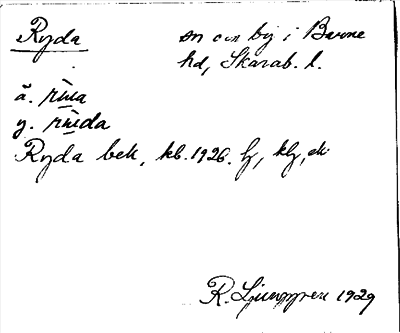 Ryda sn och by i Barne
hd, Skarab. l.
ä.
y.
Ryda bek. kb. 1926. hf, kf,
R. Ljunggren 1929